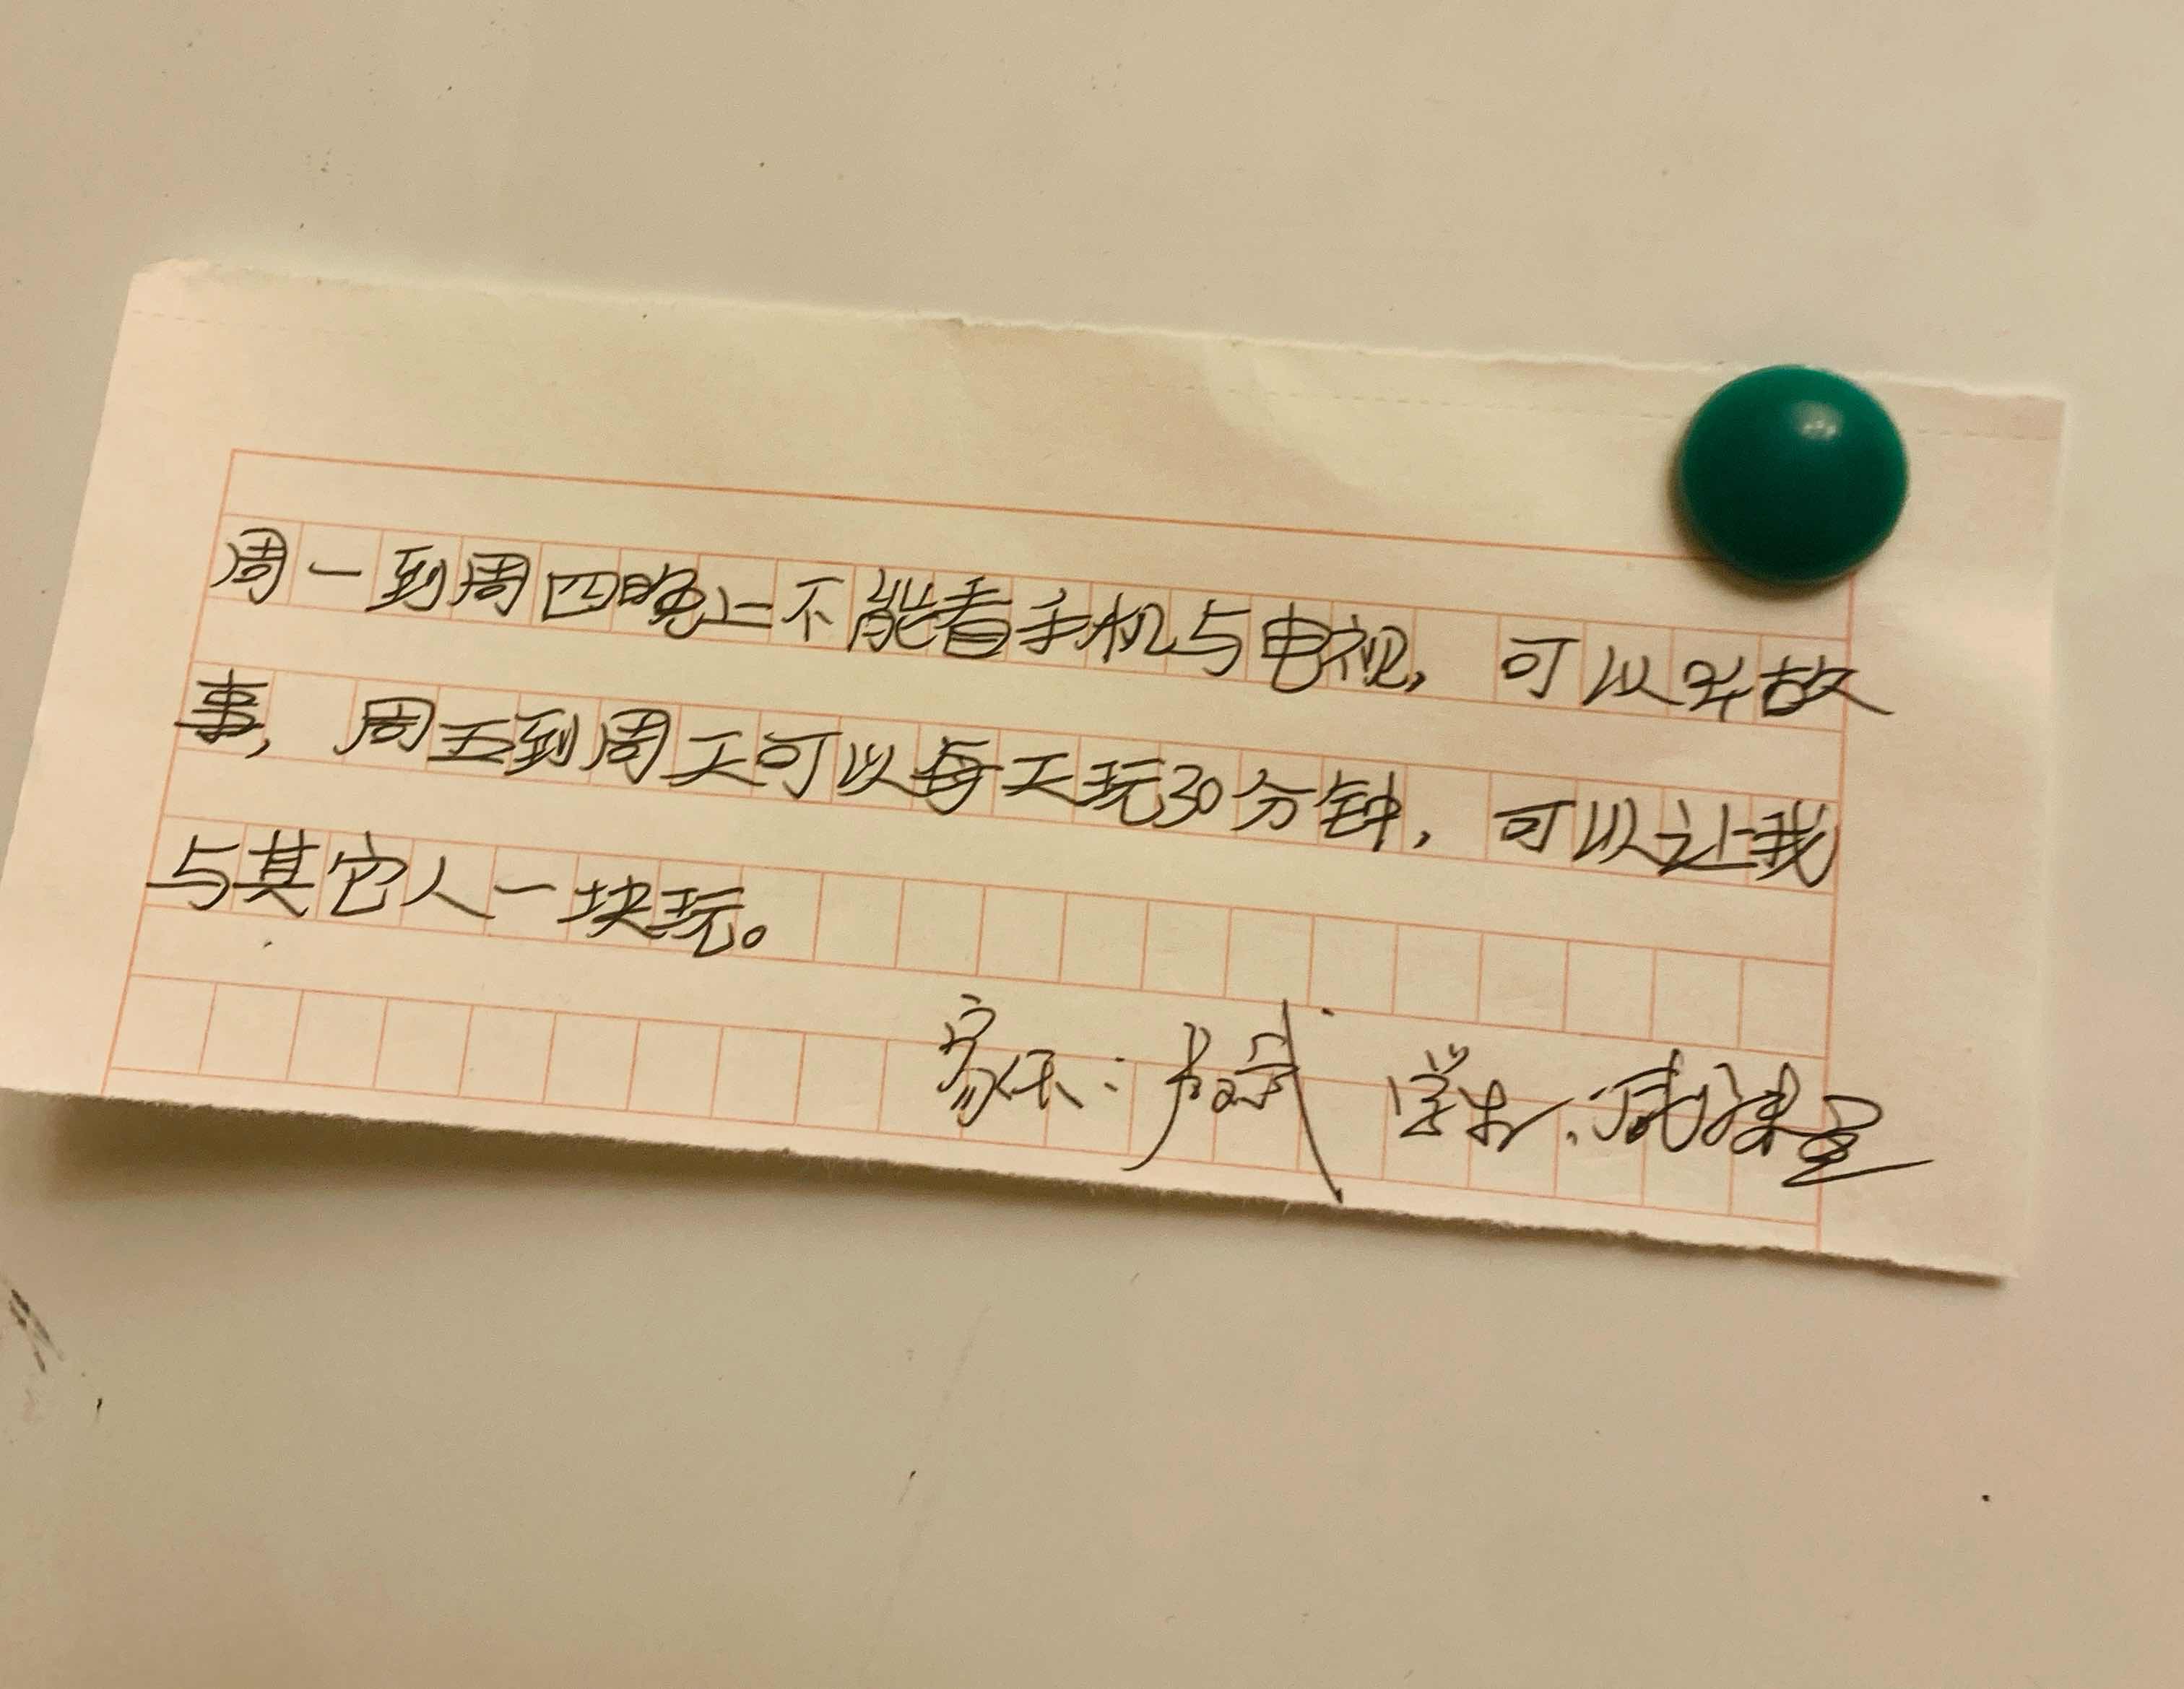 周一到周四晚上不能看手机与电视，可以听故
事，周五到周天可以每天玩30分钟，可以让我
与其它人一块玩。
家长：学生：